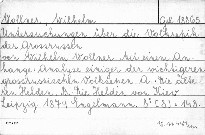 Wollner, Wilhelm
Untersuchungen über die Volksepik
der Grossrussen
von Wilhelm Wollner mit einem An-
hange: Analyse einiger der wichtigeren
grossrussischen Volkslieder A. Die älte-
ren Helden. B. Die Helden von Kiew
Leipzig 1879 Engelmann. 8°